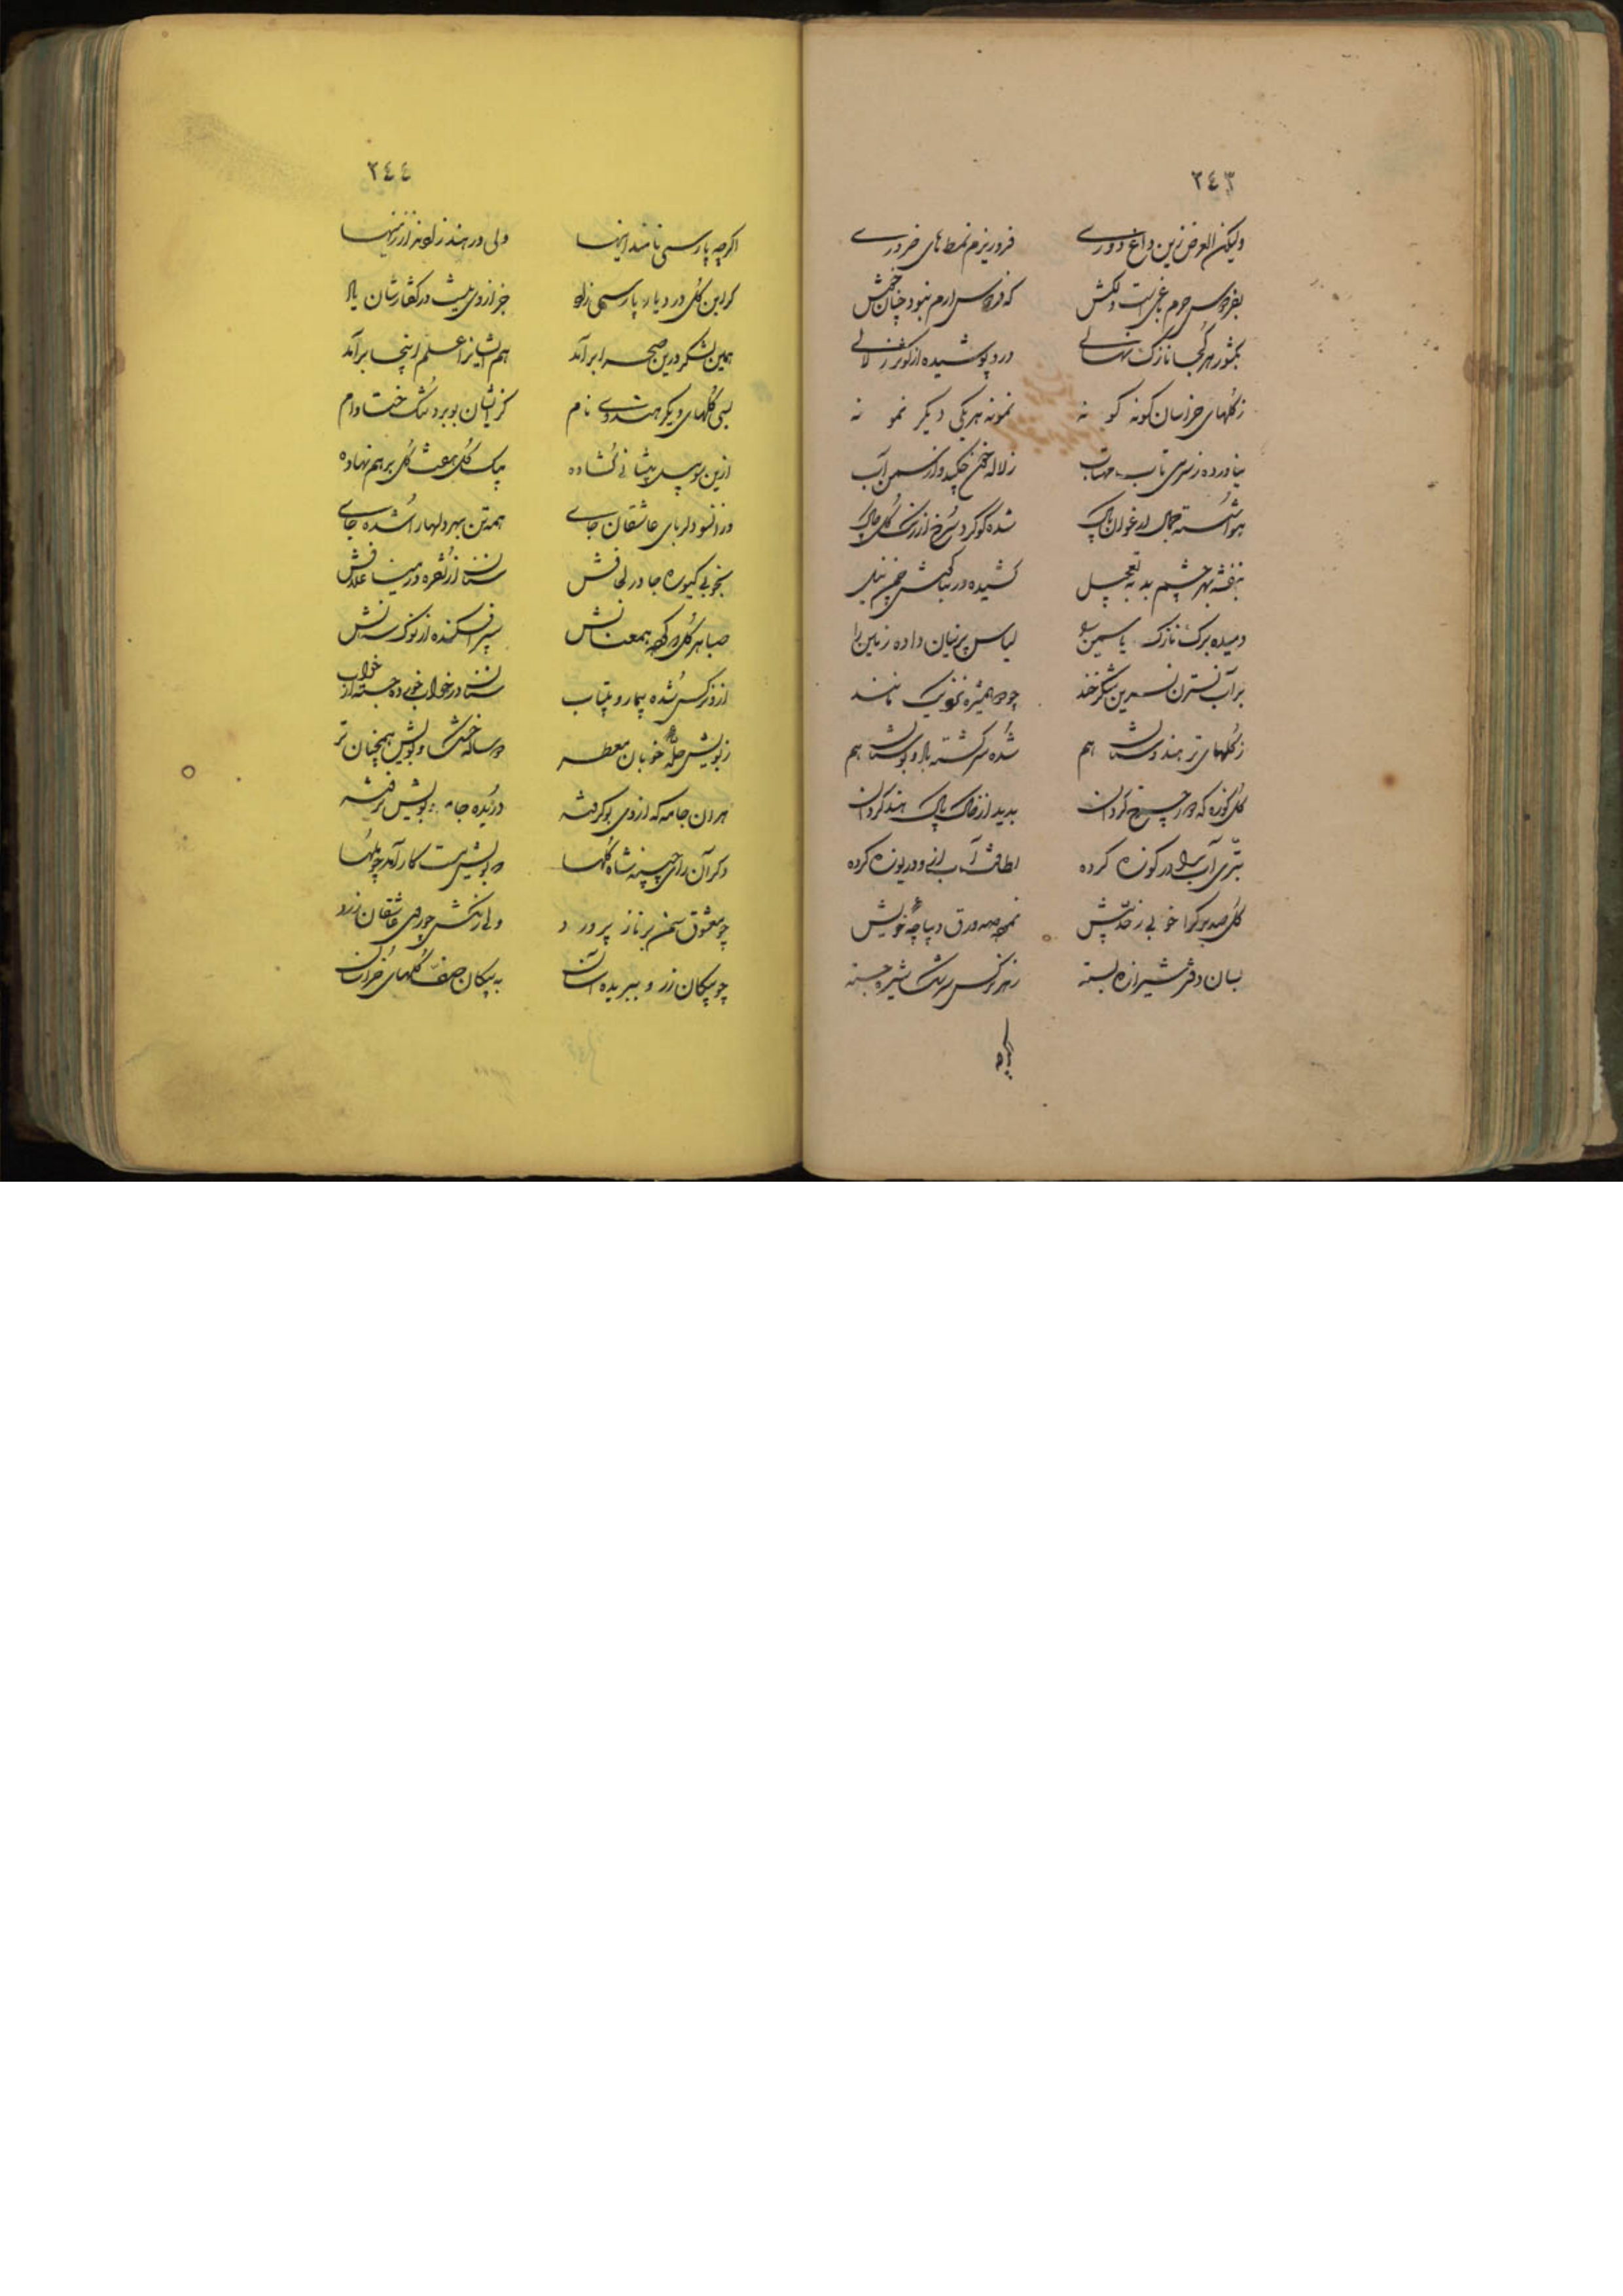 ٢٤٣
ولیکن الغرض زین داغ دوری فرو ریزم نمطهای ضروری
بفردوس حرم باغی است دلکش که فردوس ارم نبود چنان خوش
بکشور هر کجا نازک نهالی درو پوشیده از کوثر زلالی
ز گلهای خراسان گونه گونه نمونه هر یکی دیگر نمونه
بیاورده ز سری تاب مهتاب ز لاله خون چکید و از سمن آب
هوا شسته جمال ارغوان پاک شده گوگرد سرخ از رنگ گل خاک
بنفشه بهر چشم بد به تعجیل کشیده در بناگوش نیل
دمیده برگ نازک یاسمین را لباس پرنیان داده زمین را
بر آب نسترن نسرین شکرخند چو همشیره نزدیک مانند
ز گلهای تر هندوستان هم شده سرگشته باد و بوستان هم
گل کوزه که از چرخ گردان پدید از خاک پاک هند کرد آن
بتری آب را در کوزه کرده لطافت آب ازو دریوزه کرده
گل صدبرگ را خوبی ز حد بیش نموده صد ورق دیباچه خویش
بسان دفتر شیرازه بسته ز هر نرگس سرشک شیره جسته
٢٤٤
اگرچه پارسی نامند اینها ولی در هند زادند از زمینها
گر این گل در دیار پارسی زاد چرا زو نیست در گفتارشان یاد
همین لشکر درین صحرا برآمد هم ایشانرا علم زینجا برآمد
بسی گلهای دیگر هندوی نام کز ایشان بو برد مشک ختا وام
ازین سو بیل پیشانی گشاده بیک گل هفت گل بر هم نهاده
وز آنسو دلربای عاشقان جای همه تن بهر دلها را شده جای
بخوبی کیوره جا در لحافش سنان از نقره و مینا غلافش
صبا هر گل که همعنانش سپر افکنده از نوک سنانش
ازو نرگس شده بیمار و بیتاب سنان در خواب خوبی ده جسته از خواب
ز بویش حله خوبان معطر دو ساله خشک و بویش همچنان تر
هر آن جامه که از وی بو گرفته دریده جامه بویش نرفته
دگر آن رای چنپه شاه گلها که بویش مشک بار آمد چو ملها
چو معشوق سمن بر ناز پرورد ولی رنگش چو روی عاشقان زرد
چو پیکان زر و ببریده آسان به پیکان صف گلهای خراسان